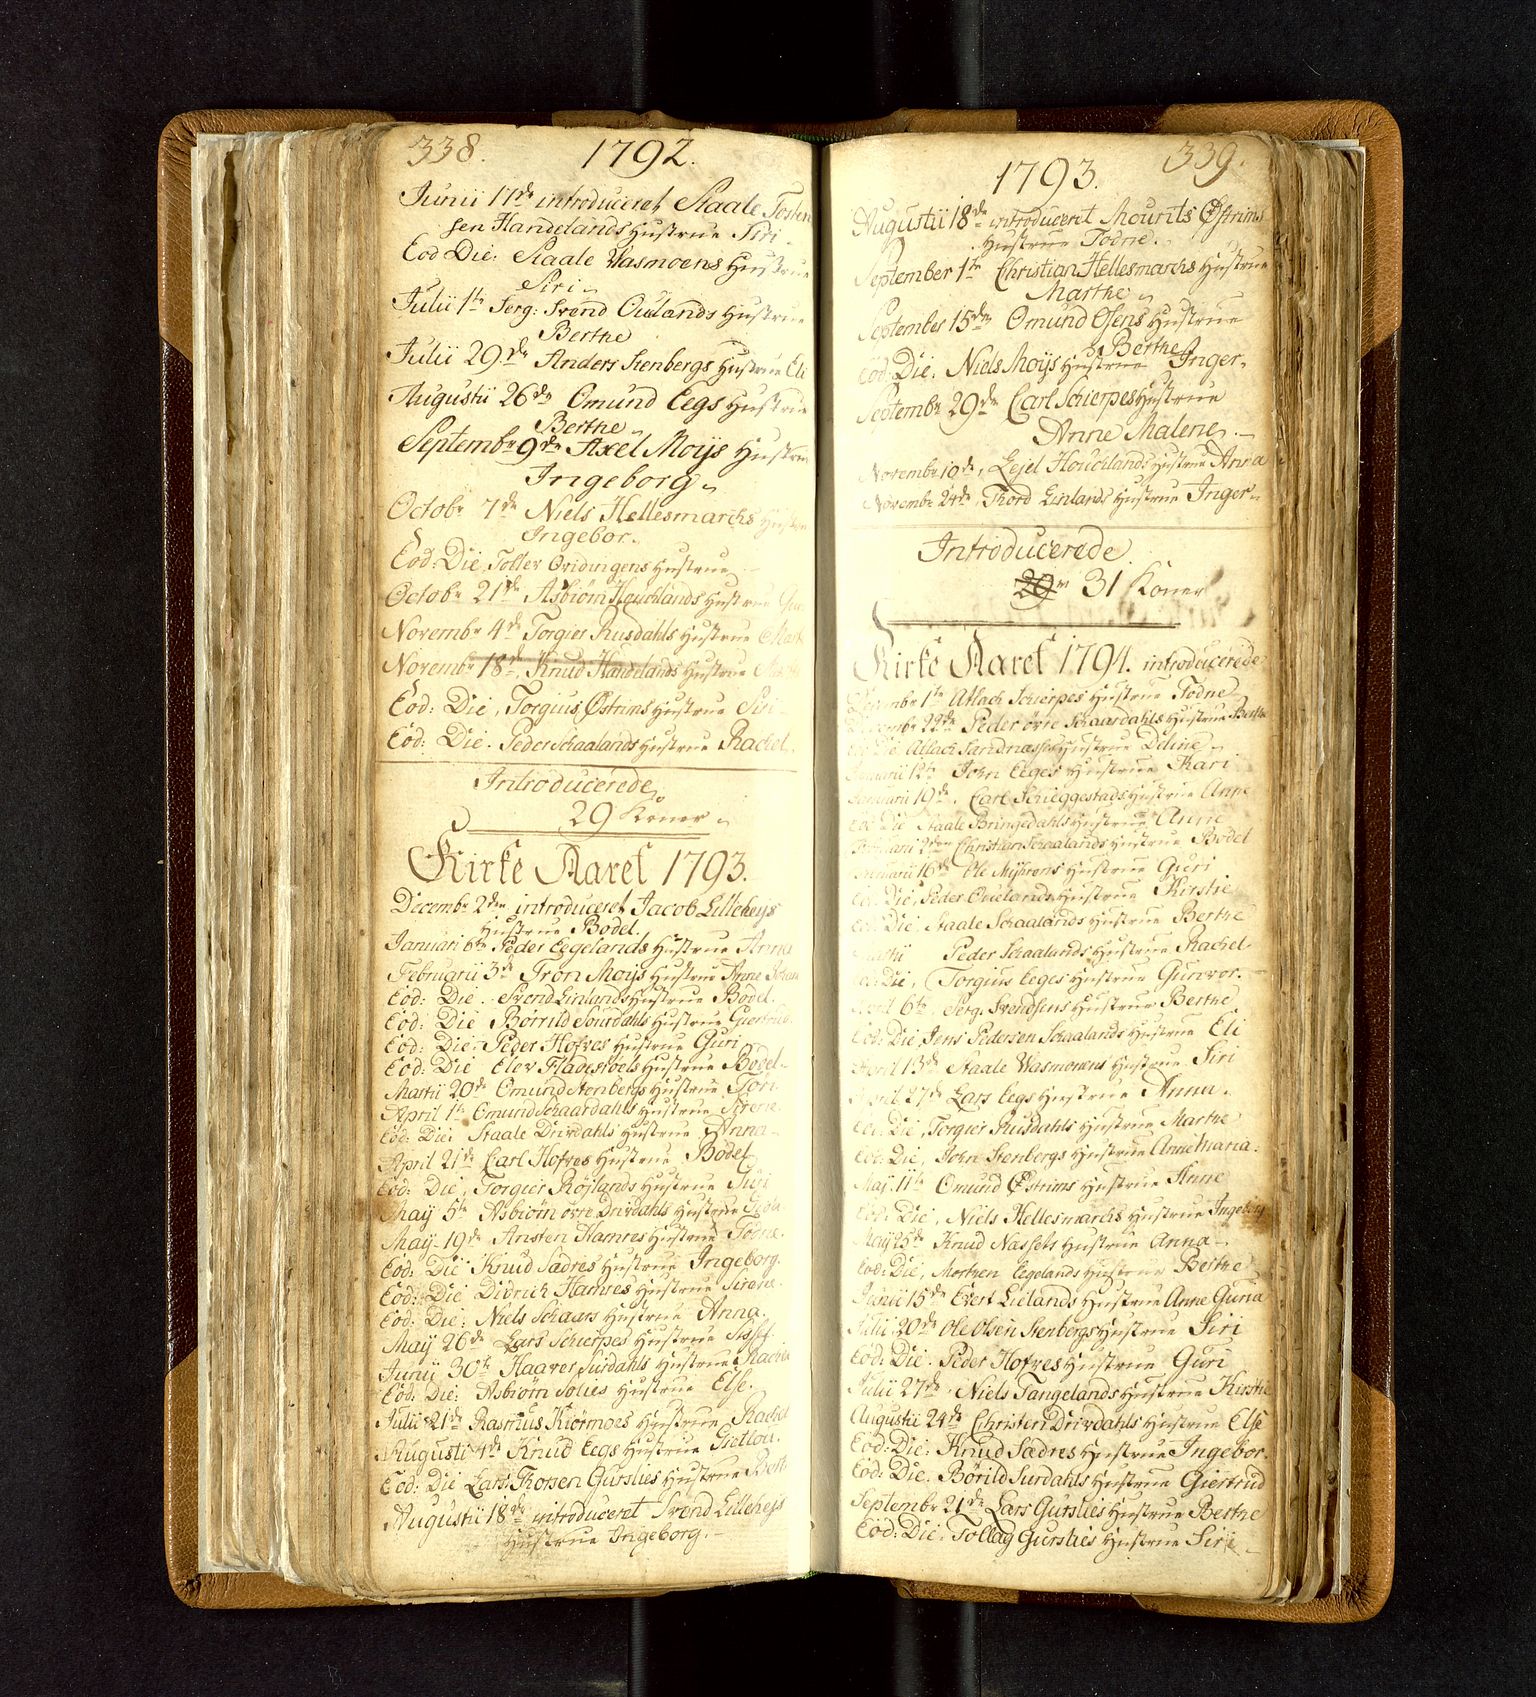 338.
1792.
Junii 11de introduceret Staale Tosten
sen Handelands Hustrue Siri
Eod Die: Staale Wasmoens Hustrue
Siri
Julii 1te Serg: Svend Ouelands Hustrue
Berthe
Julii 29de Anders Stenbergs Hustrue Eli
Augustii 26de Omund Eegs Hustrue
Berthe
Septembr 9de Axel Moijs Hustrue
Ingeborg
Octobr 7de Niels Hellesmarchs Hustrue
Ingebor.
Eod Die, Toller Hustrue
Octobr 21de Asbiörn Houchlands Hustrue
Novembr 4de Torgier Rusdahls Hustrue
Novembr 18de, Knud Handelands Hustrue
Eod: Die, Torgius Østrims Hustrue Siri
Eod: Die. Peder Schaalands Hustrue Rachel.
Introducerede
29 Koner
Kirke Aaret 1793.
Decembr 2den introduceret Jacob Lillehejs
Hustrue Bodel.
Januari 6te Peder Eegelands Hustrue Anna
Februarii 3de Tron Moijs Hustrue Anne
Eod: Die. Svend Linlands Hustrue Bodel.
Eod: Die Börrild Sourdahls Hustrue Giertrud
Eod: Die Peder Hofves Hustrue Guri
Eod: Die Elev Fladestöels Hustrue Bodel
Martii 20de Omund Stenbergs Hustrue Tori
April 1te Omund Schaardahls Hustrue Sirene
Eod: Die: Staale Drivdahls Hustrue Anna
April 21de Carl Hofves Hustrue Bodel
Eod: Die, Torgier Röjlands Hustrue Siri
Maij 5te Asbiörn övre Drivdahls Hustrue
Maij 19de Ansten Hamres Hustrue Todne.
Eod: Die Knud Sædres Hustrue Ingeborg.
Eod: Die Didrich Hamres Hustrue Sirene.
Eod: Die: Niels Schaars Hustrue Anna.
Maij 26de Lars Schierpes Hustrue
Junii 30te Haaver Surdahls Hustrue Rachel
Eod: Die: Asbiörn Solies Hustrue Else.
Julii 21de Rasmus Kiörmoes Hustrue Rachel
Augusti 4de Knud Eegs Hustrue
Eod: Die Lars Thorsen Gurslies Hustrue
Augustii 18de introduceret Svend Lillehejs
Hustrue Ingeborg.
339.
1793.
Augustii 18de introduceret Mourits Østrims
Hustrue Todne.
September 1te Christian Hellesmarchs Hustrue
Marthe
September 15de Omund Osens Hustrue
Berthe
Eod: Die. Niels Moijs Hustrue Inger.
Septembr 29de Carl Schierpes Hustrue
Anne Malene.
Novembr 10de, Ejel Houchlands Hustrue Anna
Novembr 24de, Thord Linlands Hustrue Inger
Introducerede
29 31 Koner
Kirke Aaret 1794. introducerede
Decembr 1te Atlach Schierpes Hustrue Todne
Decembr 22de Peder övre Schaardahls Hustrue Berthe
Eod: Die Atlach Sandnæsses Hustrue
Januarii 12te John Eeges Hustrue Kari
Januarii 19de. Carl Schieggestads Hustrue Anne
Eod: Die Staale Bringedahls Hustrue Anne
Februari 2den Christian Schaalands Hustrue Bodel
Februarii 16de Ole Hustrue Guri
Eod: Die, Peder Ouelands Hustrue Kirstie
Eod: Die, Staale Schaalands Hustrue Berthe
Martii Peder Schaalands Hustrue Rachel.
Eod: Die, Torgius Eeges Hustrue Gunvor.
April 6te Serg. Svendsens Hustrue Berthe
Eod: Die, Jens Pedersen Schaalands Hustrue Eli
April 13de Staale Wasmoens Hustrue Siri
April 27de Lars Eegs Hustrue Anna.
Eod: Die, Torgier Rusdahls Hustrue Marthe
Eod: Die, John Stenbergs Hustrue Anne Maria.
Maij. 11te Omund Østrims Hustrue Anne
Eod: Die, Niels Hellesmarchs Hustrue Ingeborg
Maij 25de Knud Nassets Hustrue Anna
Eod: Die, Mortzen Eegelands Hustrue Berthe
Junii 15de Evert Lielands Hustrue Anne Guria
Julii 20de Ole Olsen Stenbergs Hustrue Siri
Eod: Die. Peder Hofves Hustrue Guri
Julii 27de. Niels Tangelands Hustrue Kirstie
Augustii 24de Christen Drivdahls Hustrue Else
Eod: Die: Knud Sædres Hustrue Ingebor.
Eod: Die. Börild Surdahls Hustrue Giertrud
Septembr 21de Lars Gurslies Hustrue Berthe
Eod: Die: Tollag Gurslies Hustrue Siri